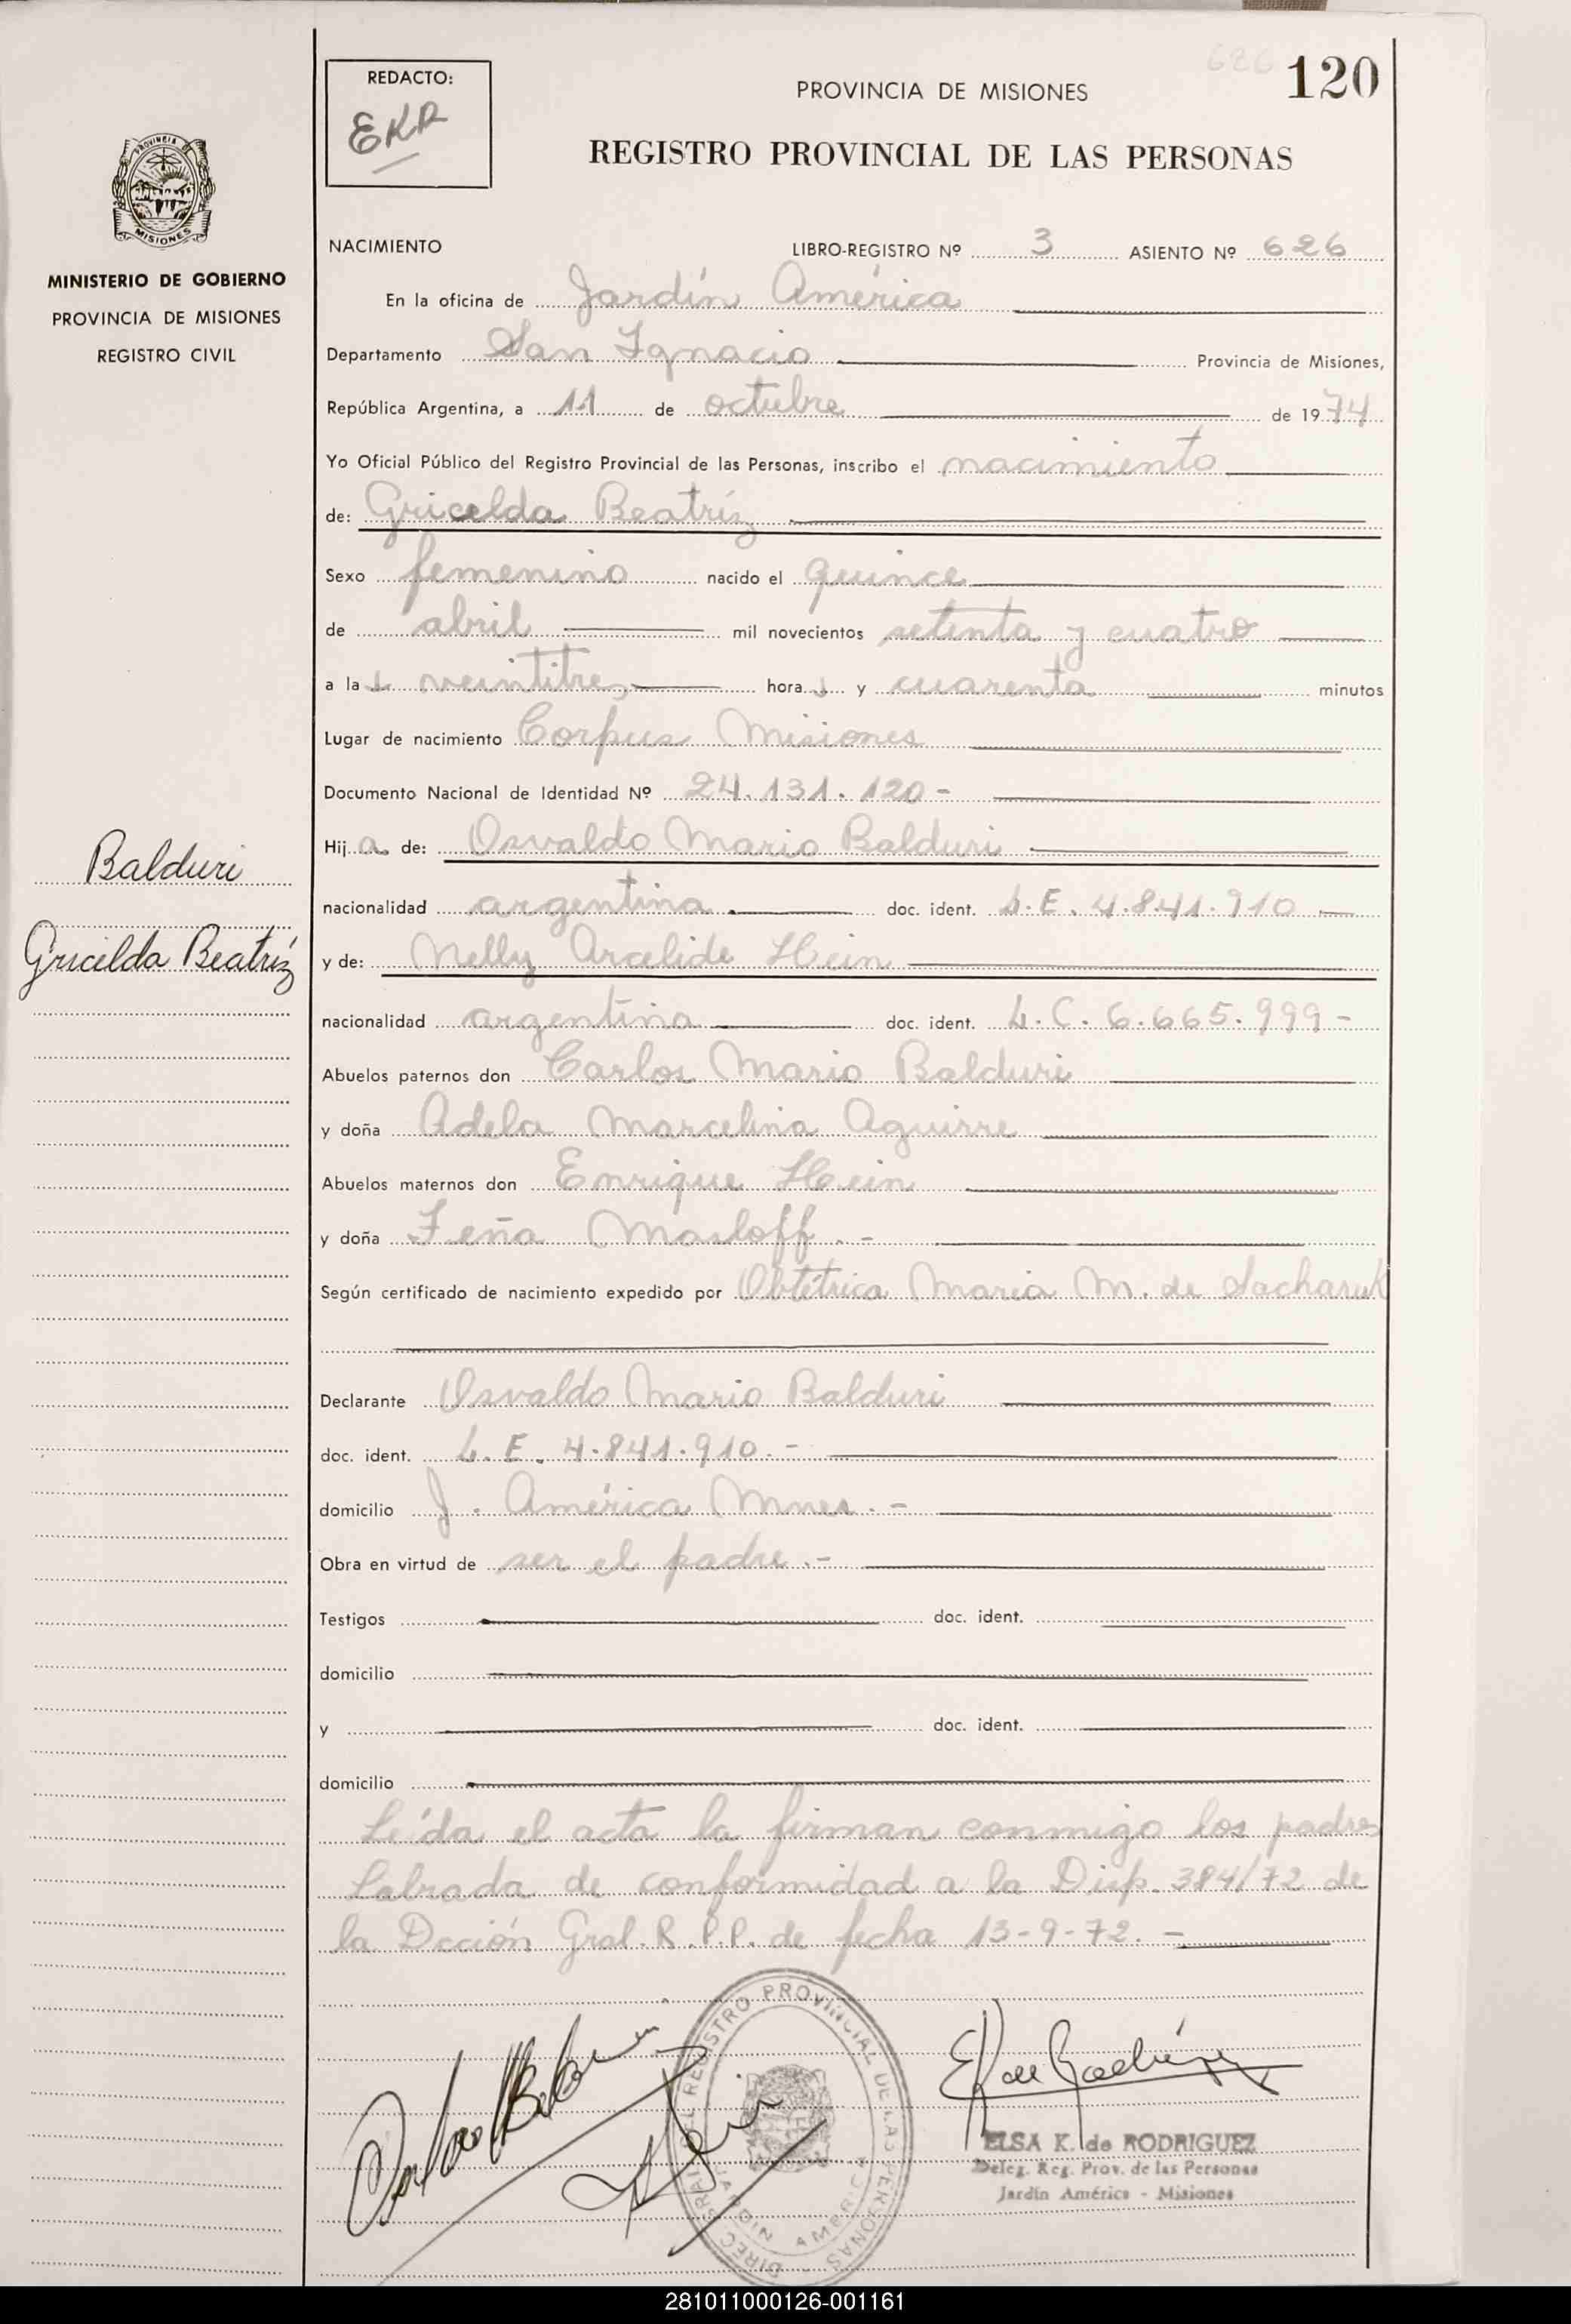 REDACTO:
EKR
626
120
PROVINCIA DE MISIONES
REGISTRO PROVINCIAL DE LAS PERSONAS
PROVINCIA DE
MISIONES
MINISTERIO DE GOBIERNO
PROVINCIA DE MISIONES
REGISTRO CIVIL
NACIMIENTO LIBRO-REGISTRO Nº 3 ASIENTO Nº 626
En la oficina de Jardín América
Departamento San Ignacio Provincia de Misiones,
República Argentina, a 11 de octubre de 1974
Yo Oficial Público del Registro Provincial de las Personas, inscribo el nacimiento
de: Gricelda Beatríz
Sexo femenino nacido el quince
de abril mil novecientos setenta y cuatro
a las veintitres horas y cuarenta minutos
Lugar de nacimiento Corpus Misiones
Documento Nacional de Identidad Nº 24.131.120-
Balduri
Gricelda Beatríz
Hija de: Osvaldo Mario Balduri
nacionalidad argentina doc. ident. L.E. 4.841.910
y de: Nelly Arcelide Hein
nacionalidad argentina doc. ident. L.C. 6.665.999-
Abuelos paternos don Carlos Mario Balduri
y doña Adela Marcelina Aguirre
Abuelos maternos don Enrique Hein
y doña Feña Masloff.-
Según certificado de nacimiento expedido por Obtétrica Maria M. de Sacharuk
Declarante Osvaldo Mario Balduri
doc. ident. L.E. 4.841.910.-
domicilio J. América Mnes.-
Obra en virtud de ser el padre.-
Testigos doc. ident.
domicilio
y doc. ident.
domicilio
Leída el acta la firman conmigo los padres
Labrada de conformidad a la Disp. 384/72 de
la Dcción Gral. R.P.P. de fecha 13-9-72.-
REGISTRO PROVINCIAL DE LAS PERSONAS
JARDIN AMERICA
ELSA K. de RODRIGUEZ
Deleg. Reg. Prov. de las Personas
Jardín América - Misiones
281011000126-001161